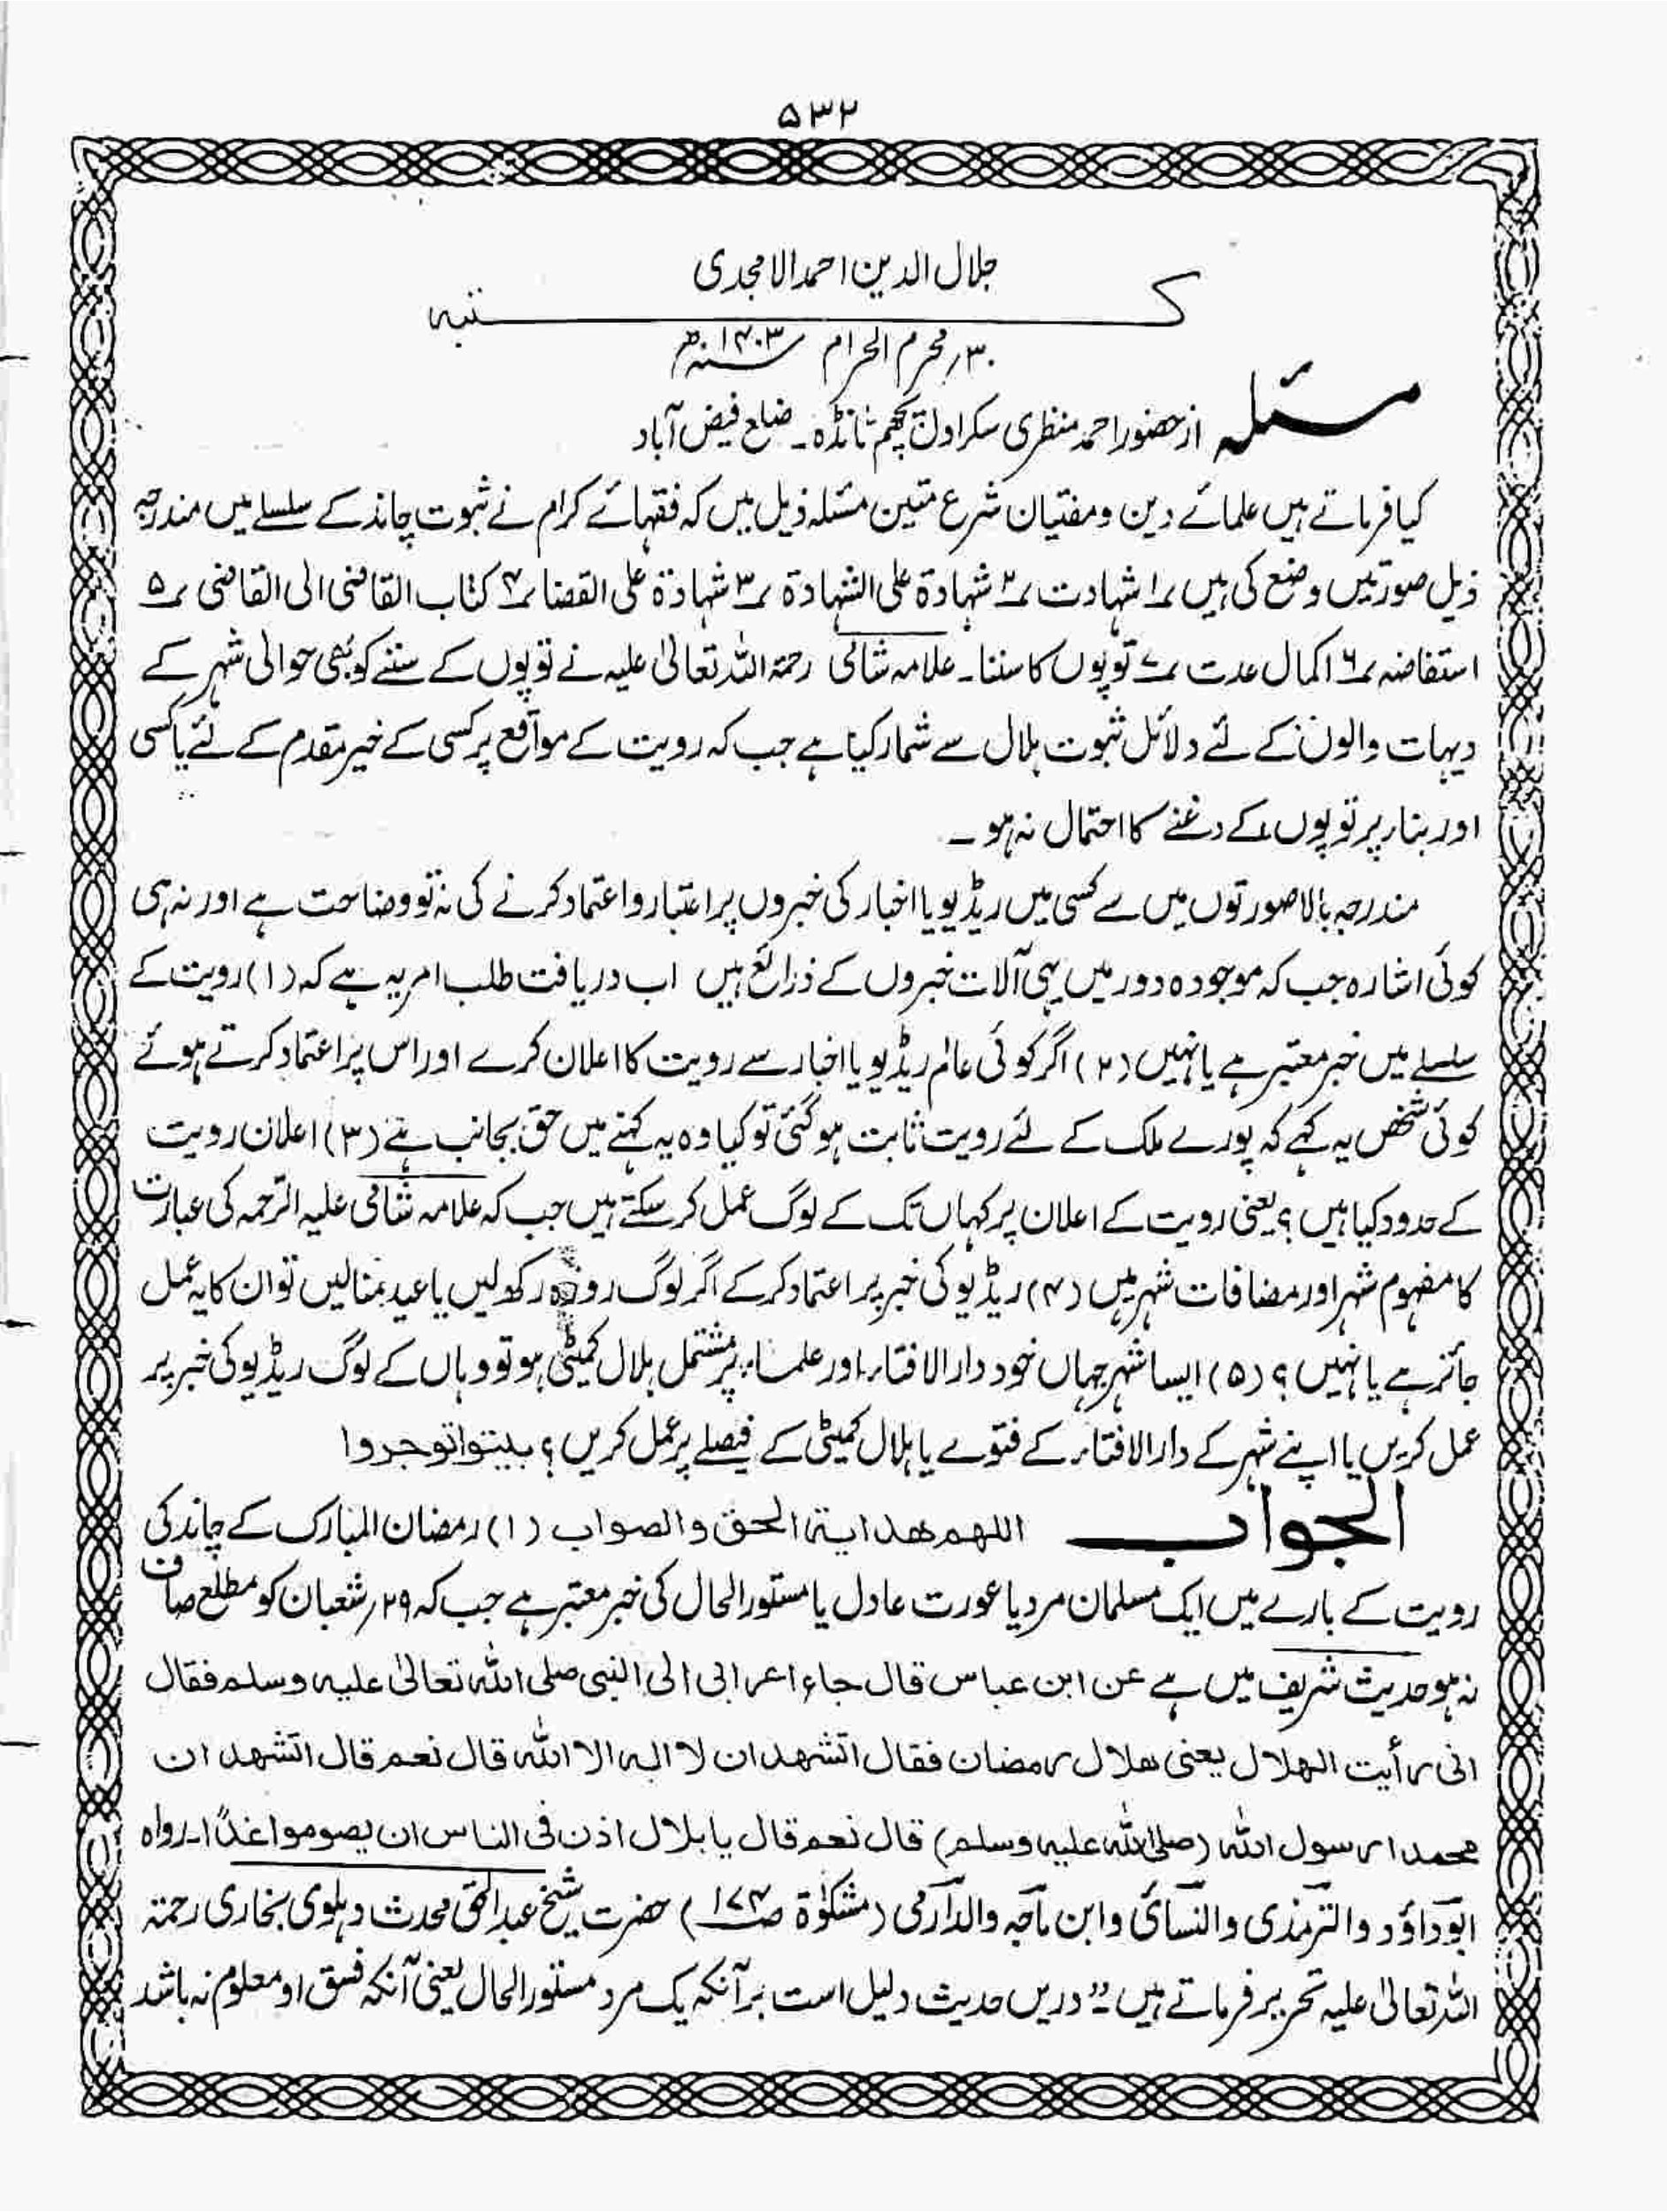 ۵۳۲
جلال الدین احمد الامجدی
کتبہ
۳۰؍ محرم الحرام ۱۴۰۳ھ
مسئلہ از حضور احمد منظری سکراول پچھم ٹانڈہ۔ ضلع فیض آباد
کیا فرماتے ہیں علمائے دین و مفتیان شرع متین مسئلہ ذیل میں کہ فقہائے کرام نے ثبوت چاند کے سلسلے میں مندرجہ
ذیل صورتیں وضع کی ہیں ۱؎ شہادت ۲؎ شہادۃ علی الشہادۃ ۳؎ شہادۃ علی القضا ۴؎ کتاب القاضی الی القاضی ۵؎
استفاضہ ۶؎ اکمال عدت ۷؎ توپوں کا سننا۔ علامہ شامی رحمۃ اللہ تعالیٰ علیہ نے توپوں کے سننے کو بھی حوالی شہر کے
دیہات والوں کے لئے دلائل ثبوت ہلال سے شمار کیا ہے جب کہ رویت کے مواقع پر کسی کے خیر مقدم کے لئے یا کسی
اور بنا پر توپوں کے دغنے کا احتمال نہ ہو ۔
مندرجہ بالا صورتوں میں سے کسی میں ریڈیو یا اخبار کی خبروں پر اعتبار و اعتماد کرنے کی نہ تو وضاحت ہے اور نہ ہی
کوئی اشارہ جب کہ موجودہ دور میں یہی آلات خبروں کے ذرائع ہیں اب دریافت طلب امر یہ ہے کہ (۱) رویت کے
سلسلے میں خبر معتبر ہے یا نہیں (۲) اگر کوئی عالم ریڈیو یا اخبار سے رویت کا اعلان کرے اور اس پر اعتماد کرتے ہوئے
کوئی شخص یہ کہے کہ پورے ملک کے لئے رویت ثابت ہو گئی تو کیا وہ یہ کہنے میں حق بجانب ہے (۳) اعلان رویت
کے حدود کیا ہیں ؟ یعنی رویت کے اعلان پر کہاں تک کے لوگ عمل کر سکتے ہیں جب کہ علامہ شامی علیہ الرحمہ کی عبارت
کا مفہوم شہر اور مضافات شہر ہیں (۴) ریڈیو کی خبر پر اعتماد کر کے اگر لوگ روزہ رکھ لیں یا عید منا لیں تو ان کا یہ عمل
جائز ہے یا نہیں ؟ (۵) ایسا شہر جہاں خود دارالافتاء اور علماء پر مشتمل ہلال کمیٹی ہو تو وہاں کے لوگ ریڈیو کی خبر پر
عمل کریں یا اپنے شہر کے دارالافتاء کے فتوے یا ہلال کمیٹی کے فیصلے پر عمل کریں ؟ بینوا توجروا
الجواب اللہم ھدایۃ الحق والصواب (۱) رمضان المبارک کے چاند کی
رویت کے بارے میں ایک مسلمان مرد یا عورت عادل یا مستور الحال کی خبر معتبر ہے جب کہ ۲۹؍ شعبان کو مطلع صاف
نہ ہو حدیث شریف میں ہے عن ابن عباس قال جاء اعرابی الی النبی صلی اللہ تعالیٰ علیہ وسلم فقال
انی رأیت الھلال یعنی ھلال رمضان فقال اتشھد ان لا الہ الا اللہ قال نعم قال اتشھد ان
محمدا رسول اللہ (صلی اللہ علیہ وسلم) قال نعم قال یا بلال اذن فی الناس ان یصوموا غدًا۔ رواہ
ابوداؤد والترمذی والنسائی وابن ماجہ والدارمی (مشکوٰۃ ص۱۷۴) حضرت شیخ عبدالحق محدث دہلوی بخاری رحمۃ
اللہ تعالیٰ علیہ تحریر فرماتے ہیں "دریں حدیث دلیل است بر آنکہ یک مرد مستور الحال یعنی آنکہ فسق او معلوم نہ باشد